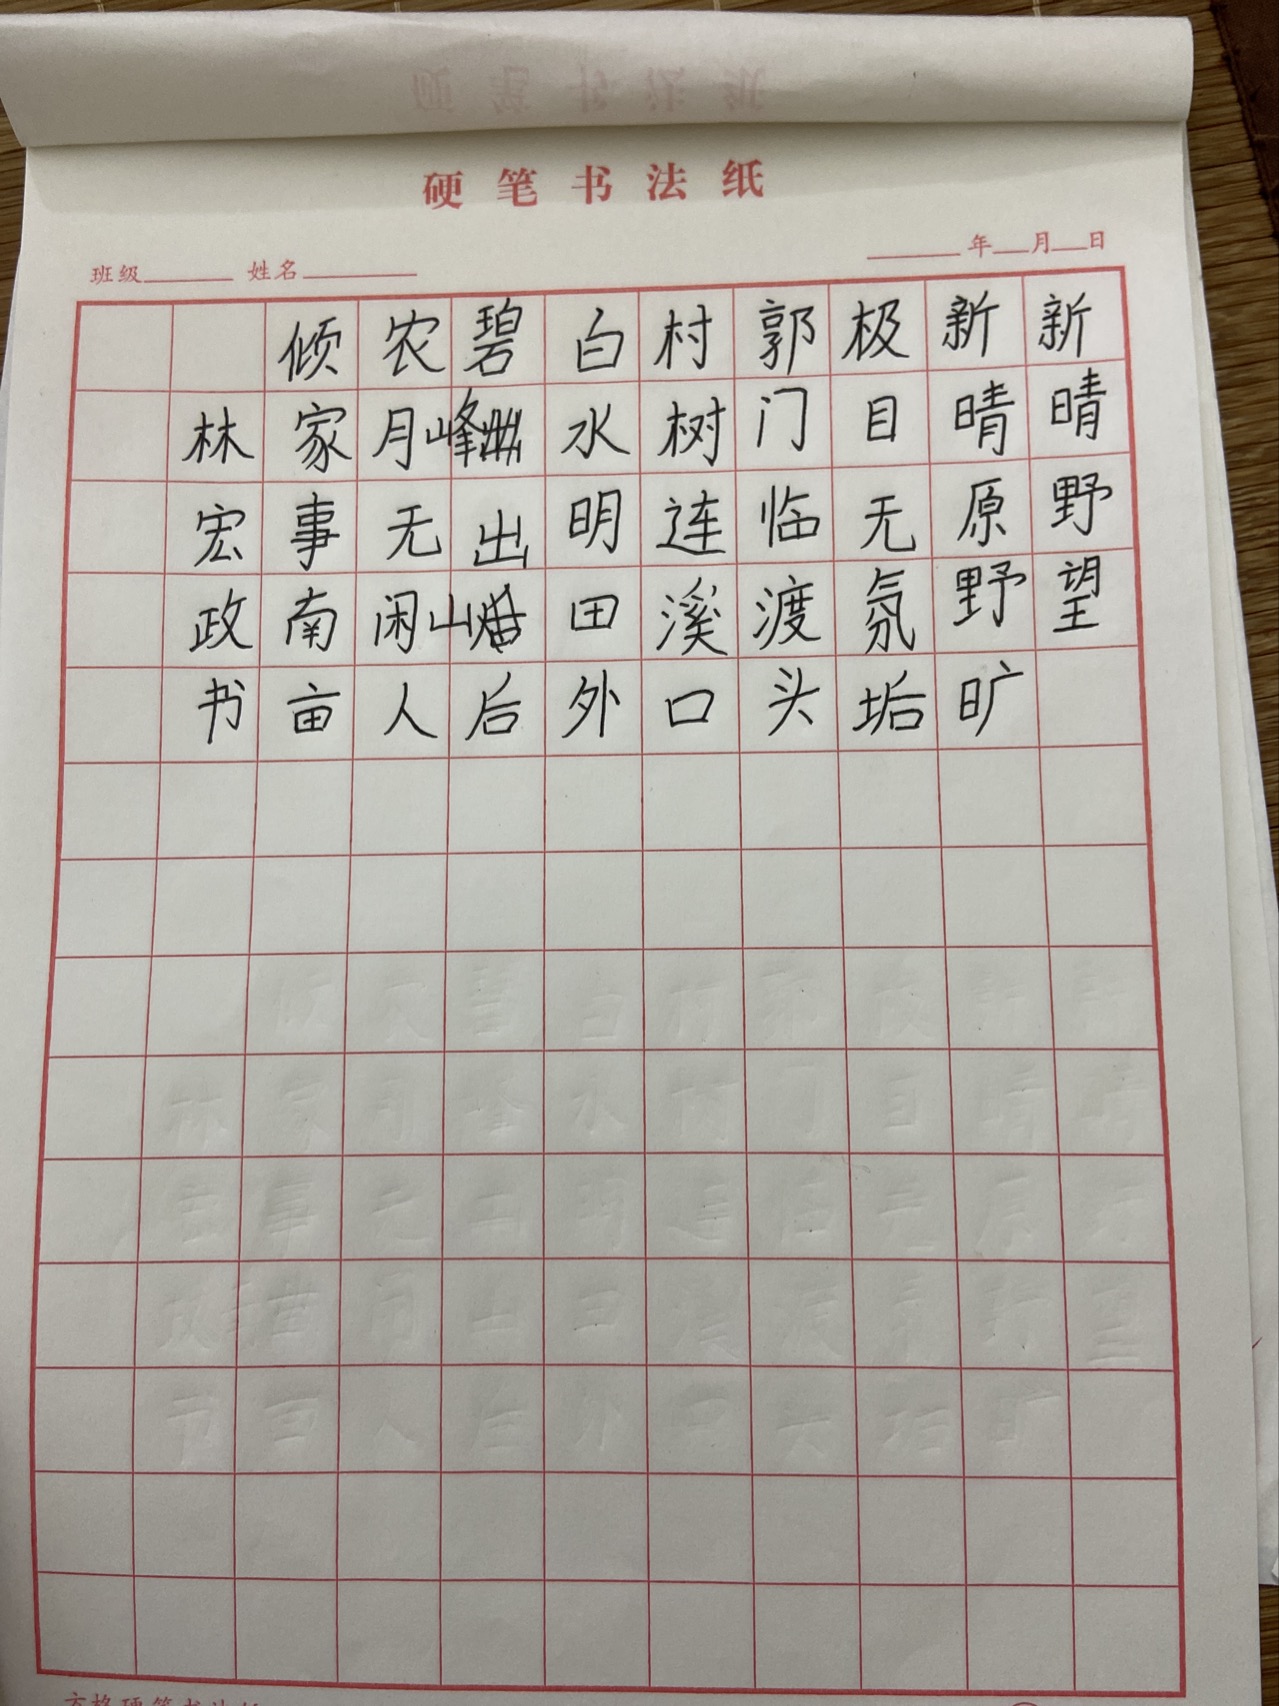 硬笔书法纸
班级 姓名 年 月 日
新晴野望
新晴原野旷
极目无氛垢
郭门临渡头
村树连溪口
白水明田外
碧峰出山后
农月无闲人
倾家事南亩
林宏政书